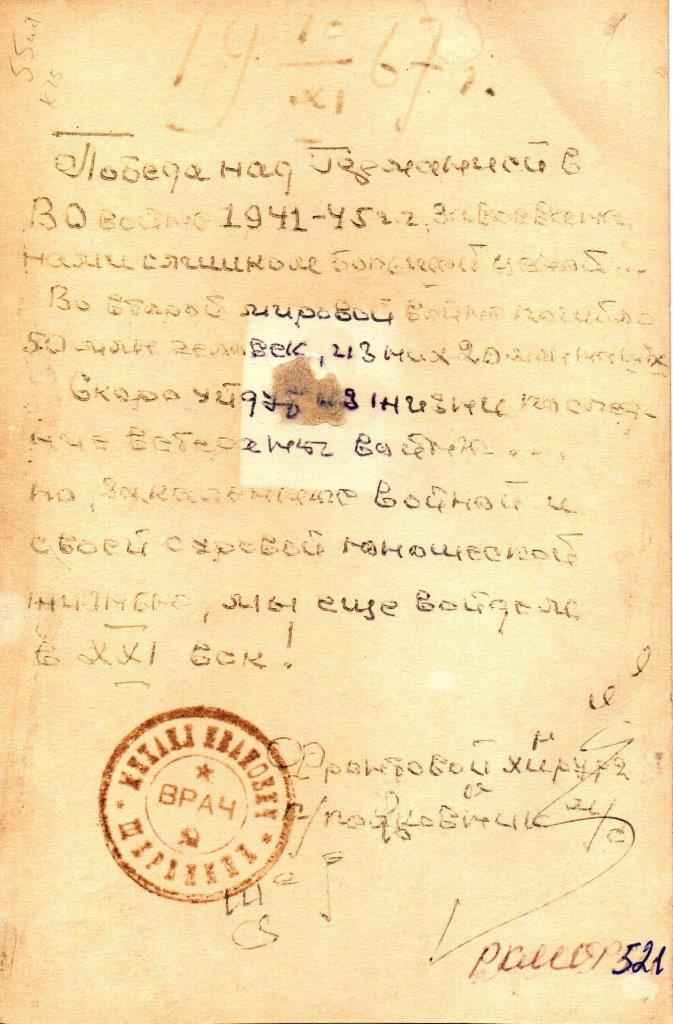 55
К15
19 10/XI 67 г.
Победа над Германией в
ВО войне 1941-45 г.г. завоевана
нами слишком большой ценой...
Во второй мировой войне погибло
50 млн человек, из них 20 млн наших
Скоро уйдут из жизни послед-
ние ветераны войны...
но, закаленные войной и
своей суровой юношеской
жизнью, мы еще войдем
в XXI век!
Фронтовой хирург
п/полковник м/с
МИХАИЛ ИВАНОВИЧ
ВРАЧ
521